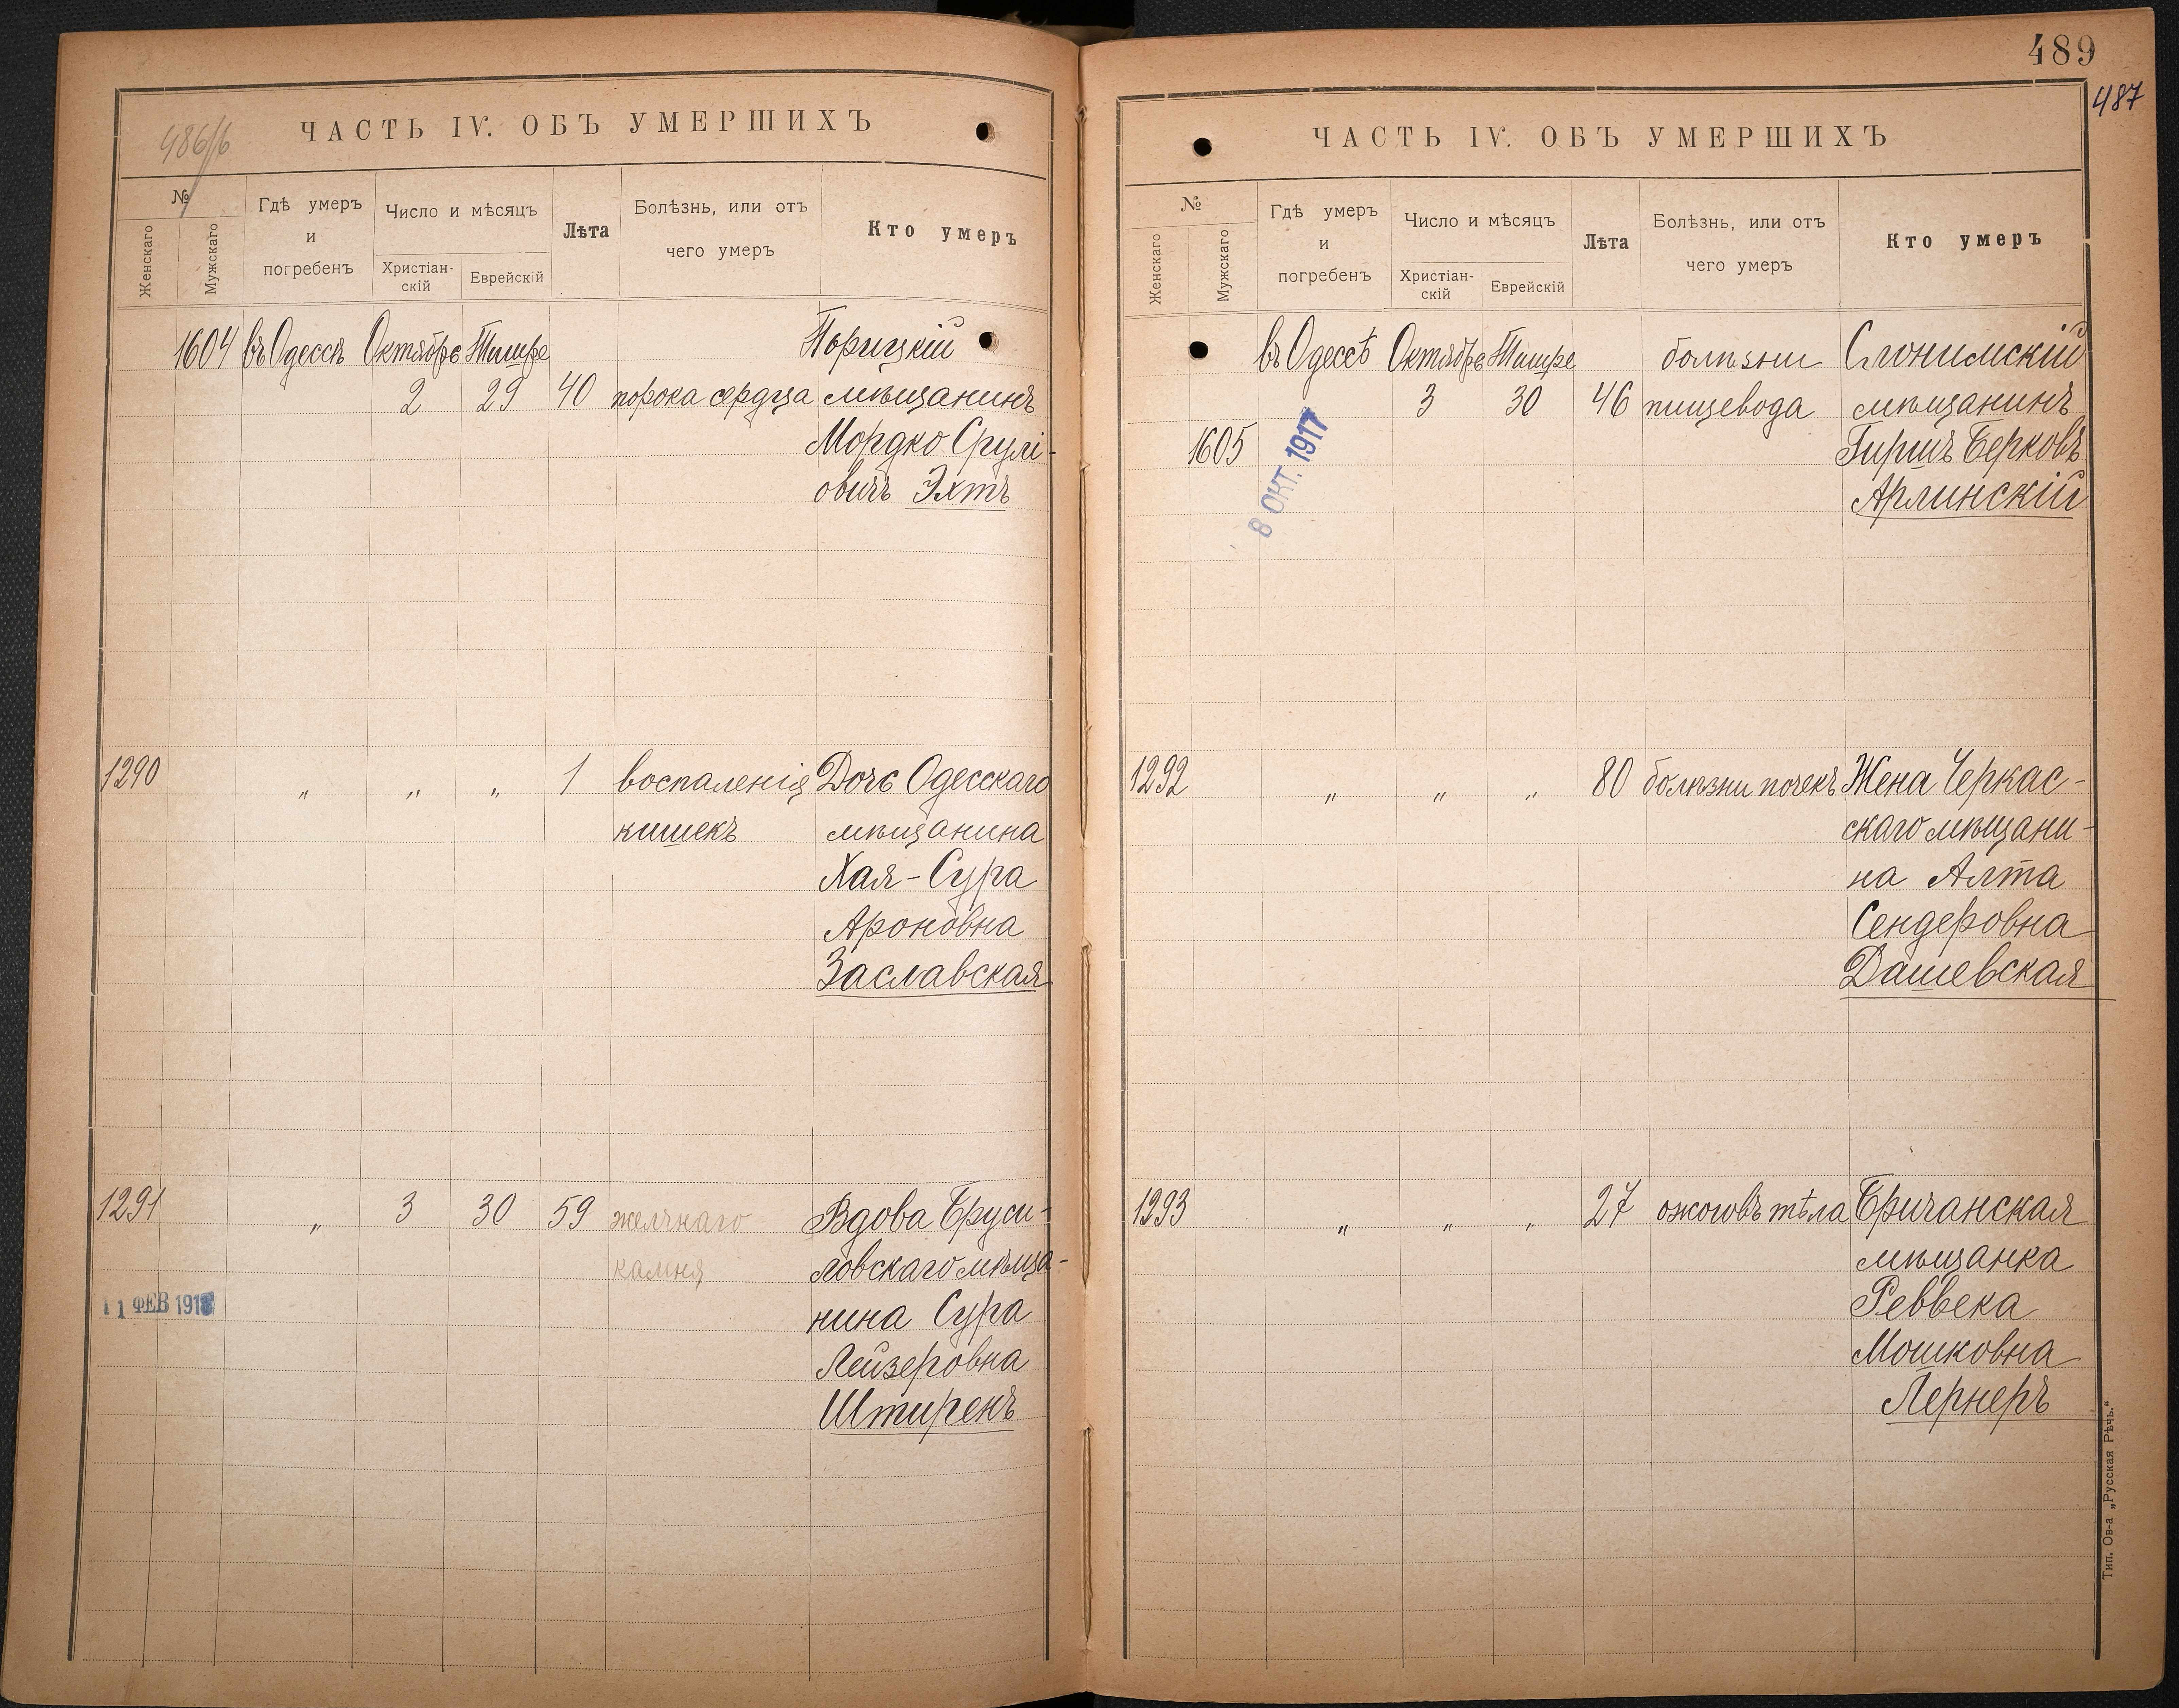 486/б
ЧАСТЬ IV. ОБЪ УМЕРШИХЪ
№
Женскаго
Мужскаго
Гдѣ умеръ
и
погребенъ
Число и мѣсяцъ
Христіан-
скій
Еврейскій
Лѣта
Болѣзнь, или отъ
чего умеръ
Кто умеръ
1604 въ Одессѣ Октябрь Тишре Порицкій
2 29 40 порока сердца мѣщанинъ
Мордко Срулі-
овичъ Эхтъ
1290 " " " 1 воспаленія Дочь Одесскаго
кишекъ мѣщанина
Хая-Сура
Ароновна
Заславская
1291 " 3 30 59 желчнаго Вдова Бруси-
камня ловскаго мѣща-
11 ФЕВ 1918 нина Сура
Лейзеровна
Штиренъ
489
487
ЧАСТЬ IV. ОБЪ УМЕРШИХЪ
№
Женскаго
Мужскаго
Гдѣ умеръ
и
погребенъ
Число и мѣсяцъ
Христіан-
скій
Еврейскій
Лѣта
Болѣзнь, или отъ
чего умеръ
Кто умеръ
въ Одессѣ Октябрь Тишре болѣзни Слонимскій
3 30 46 пищевода мѣщанинъ
1605 8 ОКТ. 1917 Гиршъ Берковъ
Арлинскій
1292 " " " 80 болѣзни почекъ Жена Черкас-
скаго мѣщани-
на Алта
Сендеровна
Дашевская
1293 " " " 27 ожоговъ тѣла Бричанская
мѣщанка
Реввека
Мошковна
Лернеръ
Тип. Ов-а „Русская Рѣчь."